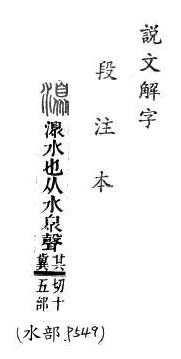 說文解字
段注本
水也从水臮聲其冀切十五部
(水部.P549)